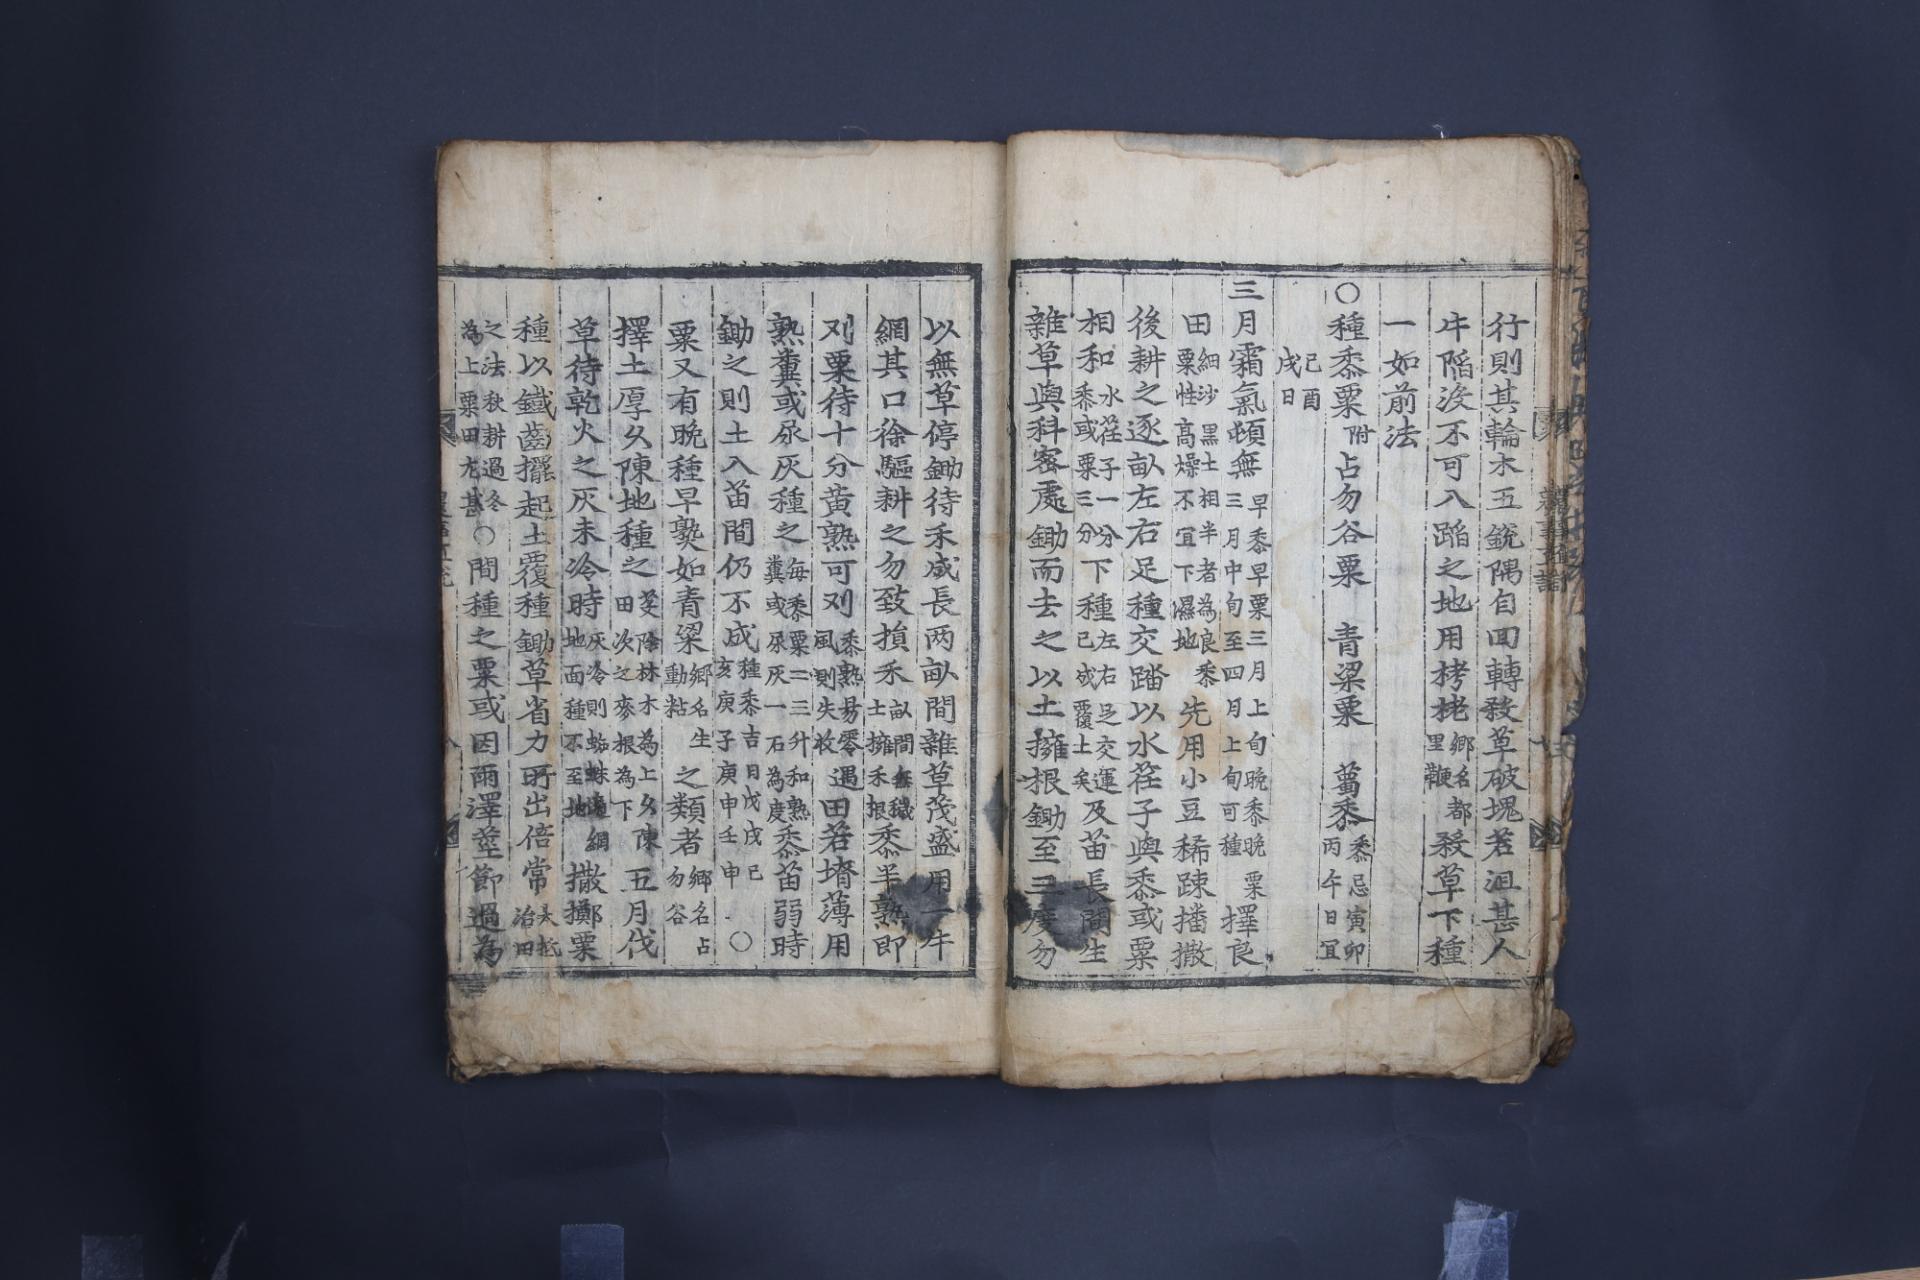 行則其輪木五銳隅自回轉殺草破塊若沮甚人
牛陷沒不可入蹈之地用栲栳鄕名都里鞭殺草下種
一如前法
○種黍粟附占勿谷粟 靑粱粟 薥黍黍忌寅卯丙午日宜
己酉戌日
三月霜氣頓無早黍早粟三月上旬晚黍晚粟三月中旬至四月上旬可種擇良
田細沙黑土相半者為良黍粟性高燥不宜下濕地先用小豆稀踈播撒
後耕之逐畝左右足種交踏以水荏子與黍或粟
相和水荏子一分黍或粟三分下種左右足交運已成覆土矣及苗長間生
雜草與科密處鋤而去之以土擁根鋤至三度勿
以無草停鋤待禾盛長两畝間雜草茂盛用一牛
網其口徐驅耕之勿致損禾畝間無穢土擁禾根黍半熟即
刈粟待十分黃熟可刈黍熟易零遇風則失收田若塉薄用
熟糞或尿灰種之每黍粟二三升和熟糞或尿灰一石為度黍苗弱時
鋤之則土入苗間仍不成種黍吉日戊戌己亥庚子庚申壬申○
粟又有晚種早熟如靑粱鄕名生動粘之類者鄕名占勿谷
擇土厚久陳地種之芟陰林木為上久陳田次之麥根為下五月伐
草待乾火之灰未冷時灰冷則蜘蛛遶網地面種不至地撒擲粟
種以鐵齒擺起土覆種鋤草省力所出倍常木麥治田
之法秋耕過冬為上粟田尤甚○間種之粟或因雨澤莖節過為